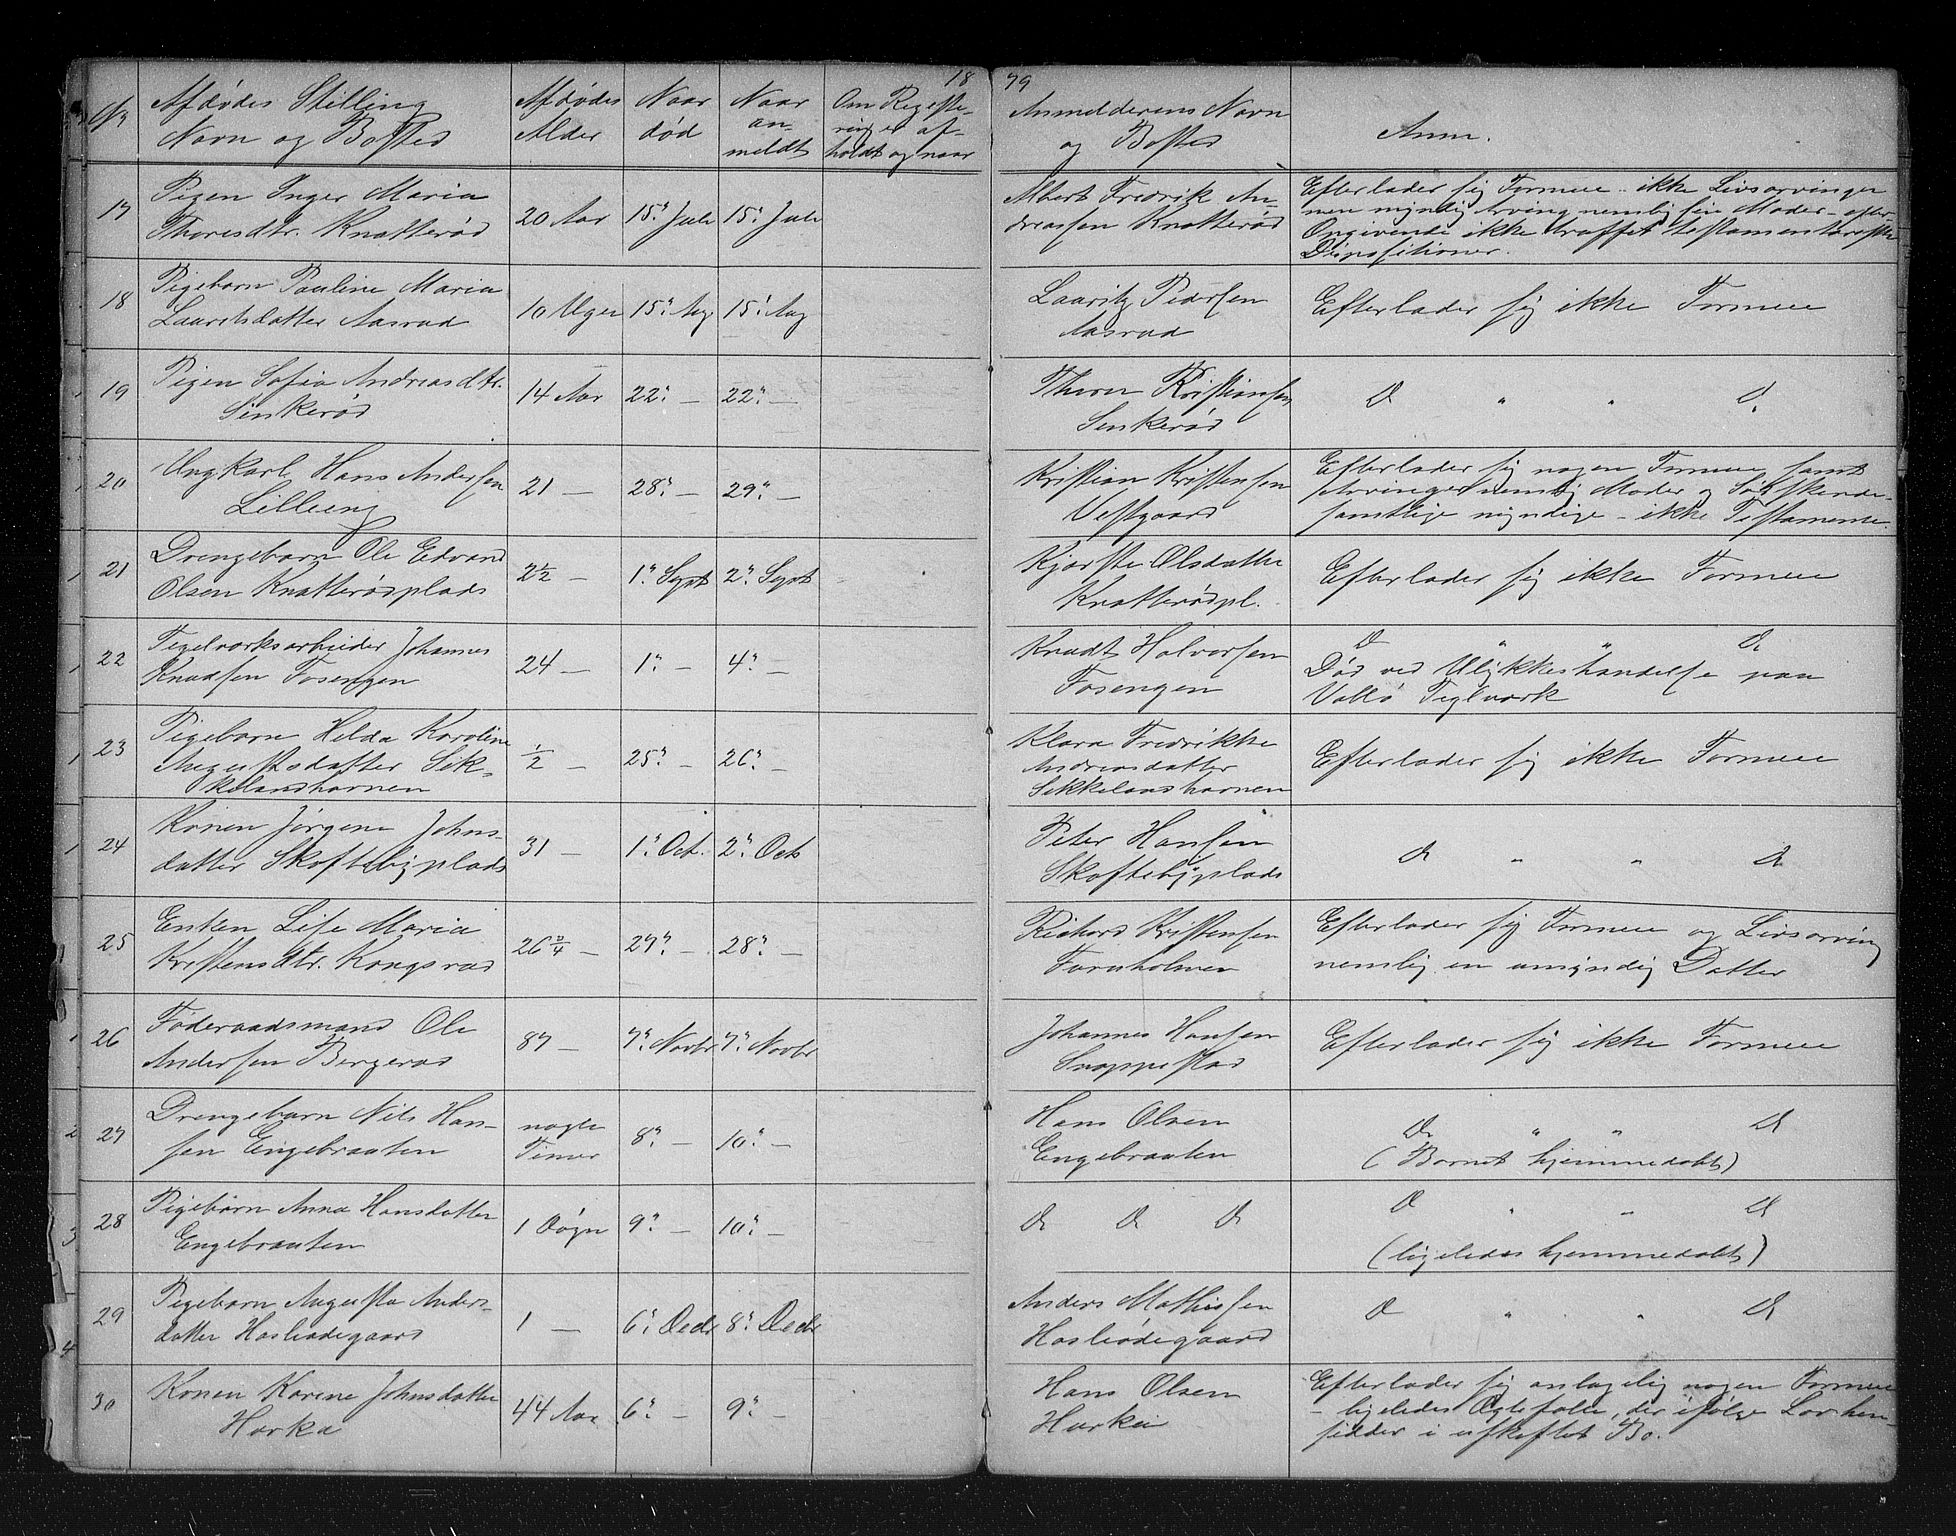 1879
No
Afdødes Stilling
Navn og Bosted
Afdødes
Alder
Naar
død
Naar
an-
meldt
Om Regestre-
ring er af-
holdt og naar
Anmelderens Navn
og Bosted
Anm.
17
Pigen Inger Maria
Thoresdtr. Knatterød
20 Aar
15. Juli
15. Juli
Albert Fredrik An-
dreassen Knatterød
Efterlader sig Formue - ikke Livsarvinger
men myndig Arving nemlig sin Moder - efter
Opgivende ikke truffet testamentariske
Dispositioner.
18
Pigebarn Pauline Maria
Lauritsdatter Aasrud
10 Uger
15. Aug
15. Aug
Lauritz Pedersen
Aasrud
Efterlader sig ikke Formue
19
Pigen Sofie Andreasdtr.
Sinkerød
14 Aar
22. —
22. —
Thorer Kristiansen
Sinkerød
D " " D.
20
Ungkarl Hans Andersen
Lilleeng
21 —
28. —
29. —
Kristian Kristensen
Vestgaard
Efterlader sig nogen Formue samt
Arvinger nemlig Moder og Søskende -
samtlige myndige - ikke Testamente.
21
Drengebarn Ole Edvard
Olsen Knatterødplads
2½ —
1. Sept
2. Sept
Kjerstie Olsdatter
Knatterødpl.
Efterlader sig ikke Formue
22
Teglværksarbeider Johannes
Knudsen Fosengen
24 —
1. —
4. —
Knudt Halvorsen
Fosengen
D " " D
Død ved Ulykkeshændelse paa
Vallø Teglværk
23
Pigebarn Helda Karoline
Augustsdatter Sik-
kelandhavnen
½ —
25. —
26. —
Klara Fredrikke
Andreasdatter
Sikkelandhavnen
Efterlader sig ikke Formue
24
Konen Jørgene Johns-
datter Skoftebyplads
31 —
1. Oct.
2. Octr
Peter Hansen
Skoftebyplads
D " " D
25
Enken Lise Maria
Kristensdtr. Kongsrud
26 ¾ —
27. —
28. —
Richard Kristensen
Furuholmen
Efterlader sig Formue og Livsarving
nemlig en umyndig Datter
26
Føderaadsmand Ole
Andersen Bergerød
87 —
7. Novbr
7. Novbr
Johannes Hansen
Snoppestad
Efterlader sig ikke Formue
27
Drengebarn Nils Han-
sen Engebraaten
nogle
Timer
8. —
10. —
Hans Olsen
Engebraaten
D " " D
(Barnet hjemmedøbt)
28
Pigebarn Anna Hansdatter
Engebraaten
1 Døgn
9. —
10. —
D D D
D " " D
(ligeledes hjemmedøbt)
29
Pigebarn Augusta Anders-
datter Hasleødegaard
1 —
6. Decbr
8. Decbr
Anders Mathissen
Hasleødegaard
D " " D
30
Konen Karine Johnsdatter
Horka
44 Aar
6. —
9. —
Hans Olsen
Horka
Efterlader sig antagelig nogen Formue
- ligeledes Ægtefælle, der ifølge Lov hen-
sidder i uskiftet Bo.